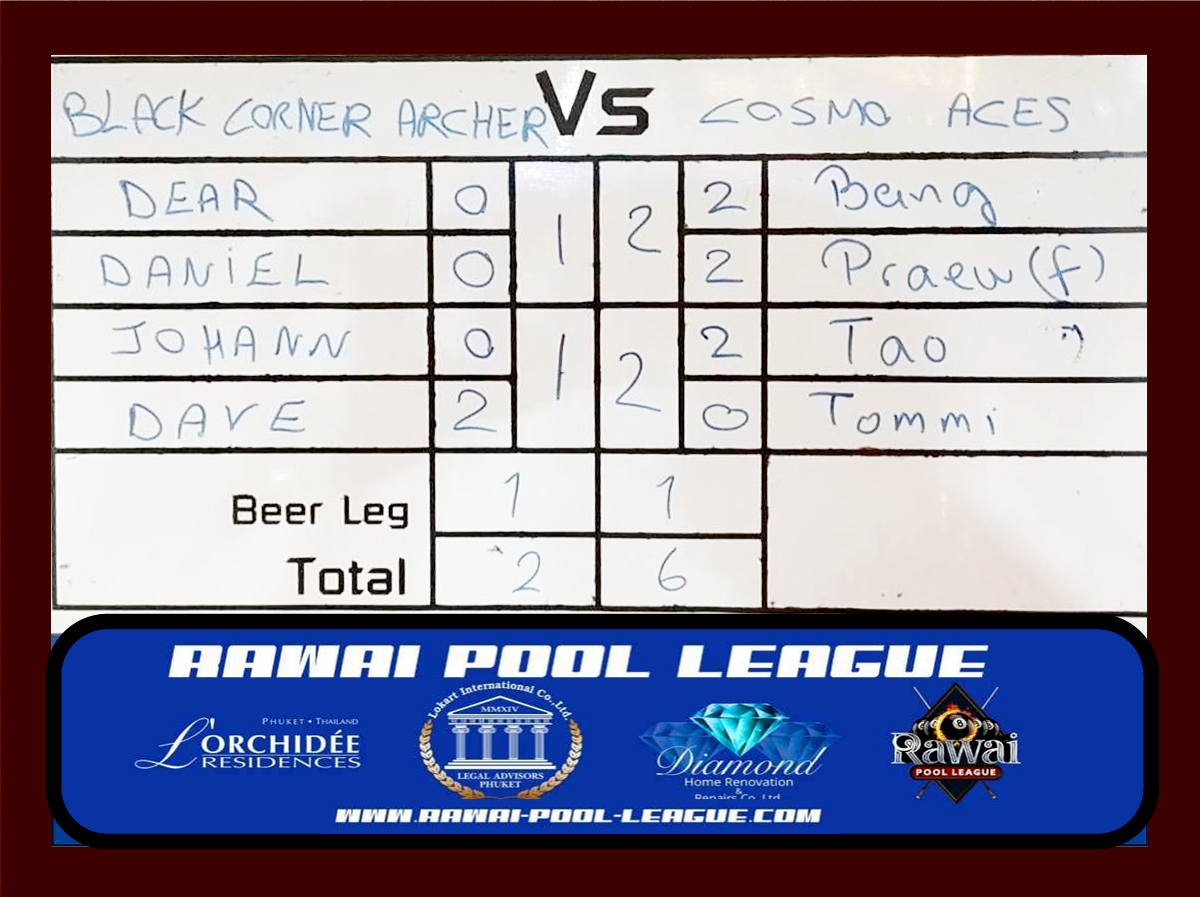 BLACK CORNER ARCHER Vs COSMO ACES
DEAR 0 1 2 2 Bang
DANiEL 0 2 Praew (f)
JOHANN 0 1 2 2 Tao :)
DAVE 2 0 Tommi
Beer Leg 1 1
Total 2 6
RAWAI POOL LEAGUE
PHUKET • THAILAND
L'ORCHIDÉE
RESIDENCES
Lokart International Co.,Ltd.
MMXIV
LEGAL ADVISORS
PHUKET
Diamond
Home Renovation
&
Repairs Co. Ltd
Rawai
8
POOL LEAGUE
WWW.RAWAI-POOL-LEAGUE.COM